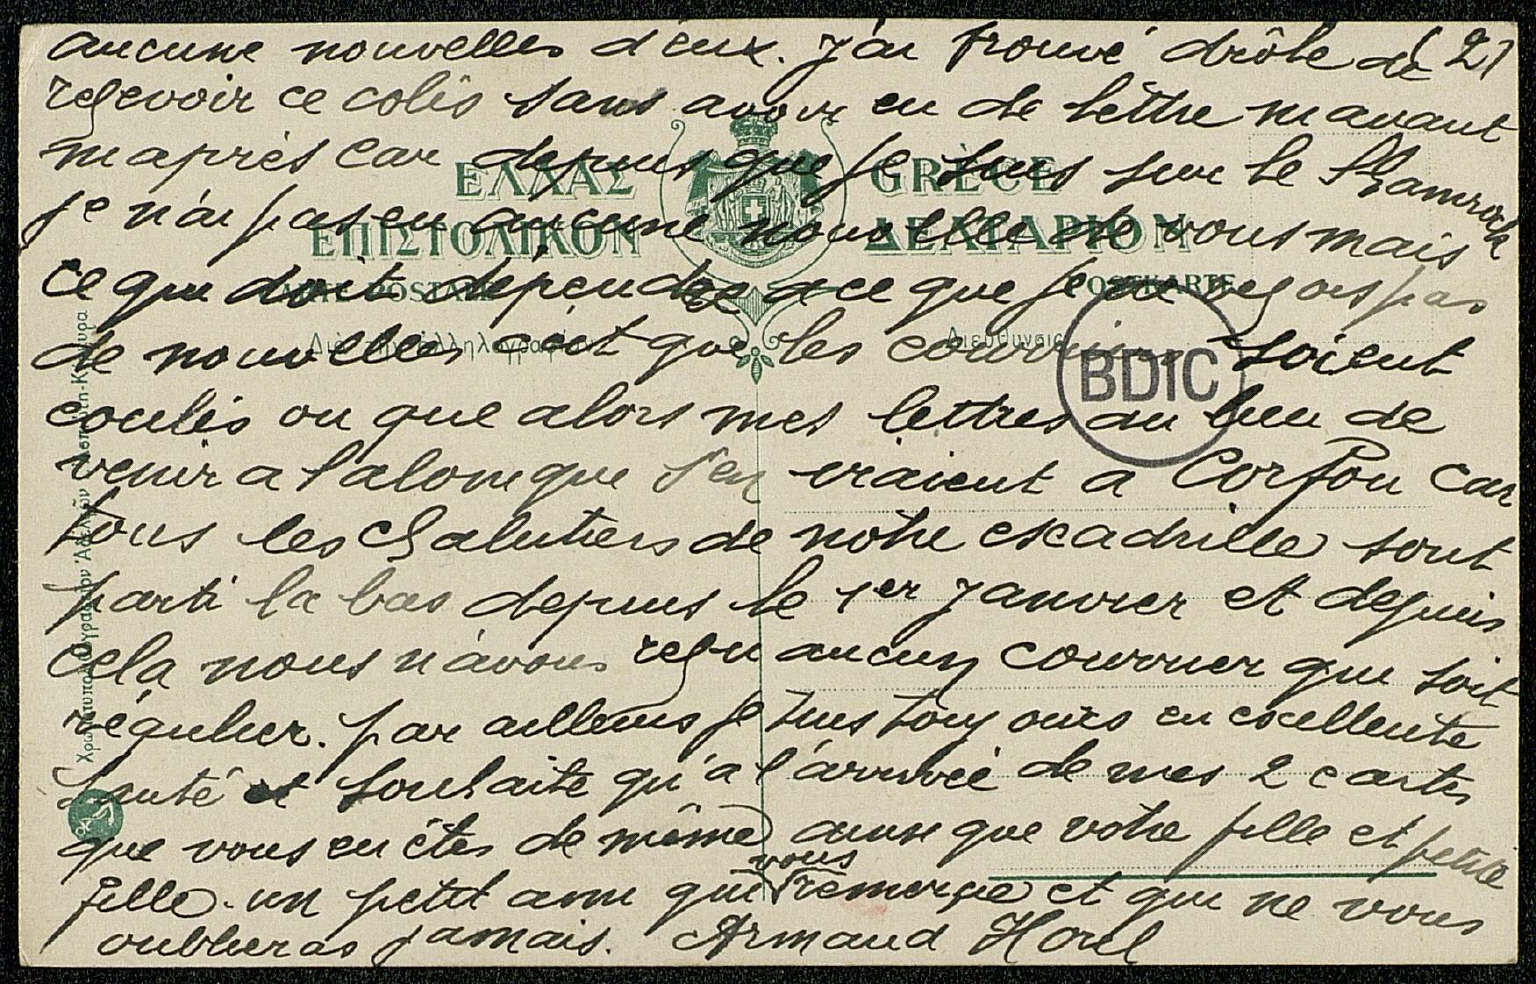 aucune nouvelles d'eux. j'ai trouvé drôle de 21
reçevoir ce colis sans avoir eu de lettre ni avant
ni après car depuis que je suis sur le Shamrock
je n'ai pas eu aucune nouvelle de vous mais
ce qui doit dépendre a ce que je ne reçois pas
de nouvelles c'est que les courriers soient
coulés ou que alors mes lettres au lieu de
venir a Salonique s'en iraient a Corfou car
tous les chalutiers de notre escadrille sont
parti la bas depuis le 1er janvier et depuis
cela nous n'avons reçu aucun courrier qui soit
régulier. par ailleurs je suis toujours en excellente
santé et souhaite qu'a l'arrivée de mes 2 cartes
que vous en êtes de même ainsi que votre fille et petite
fille. un petit ami qui vous remerçie et qui ne vous
oublieras jamais. Armand Horel
ΕΛΛΑΣ GRÈCE
ΕΠΙΣΤΟΛΙΚΟΝ ΔΕΛΤΑΡΙΟΝ
POSTALE POSTKARTE
Διεύθυνσις
BDIC